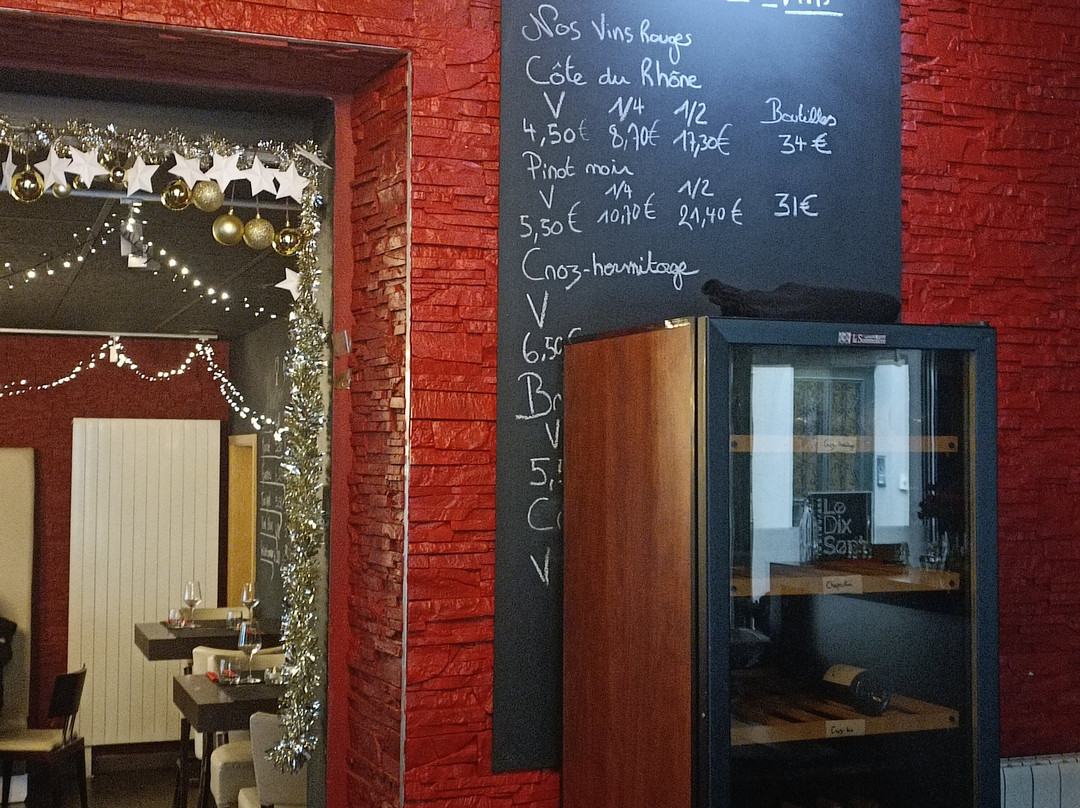 Nos Vins Rouges
Côte du Rhône
V 1/4 1/2 Bouteilles
4,50€ 8,70€ 17,30€ 34€
Pinot noir
V 1/4 1/2
5,50€ 10,70€ 21,40€ 31€
Croz-hermitage
V
6,50€
V
5,
V
Le
Dix
Sept